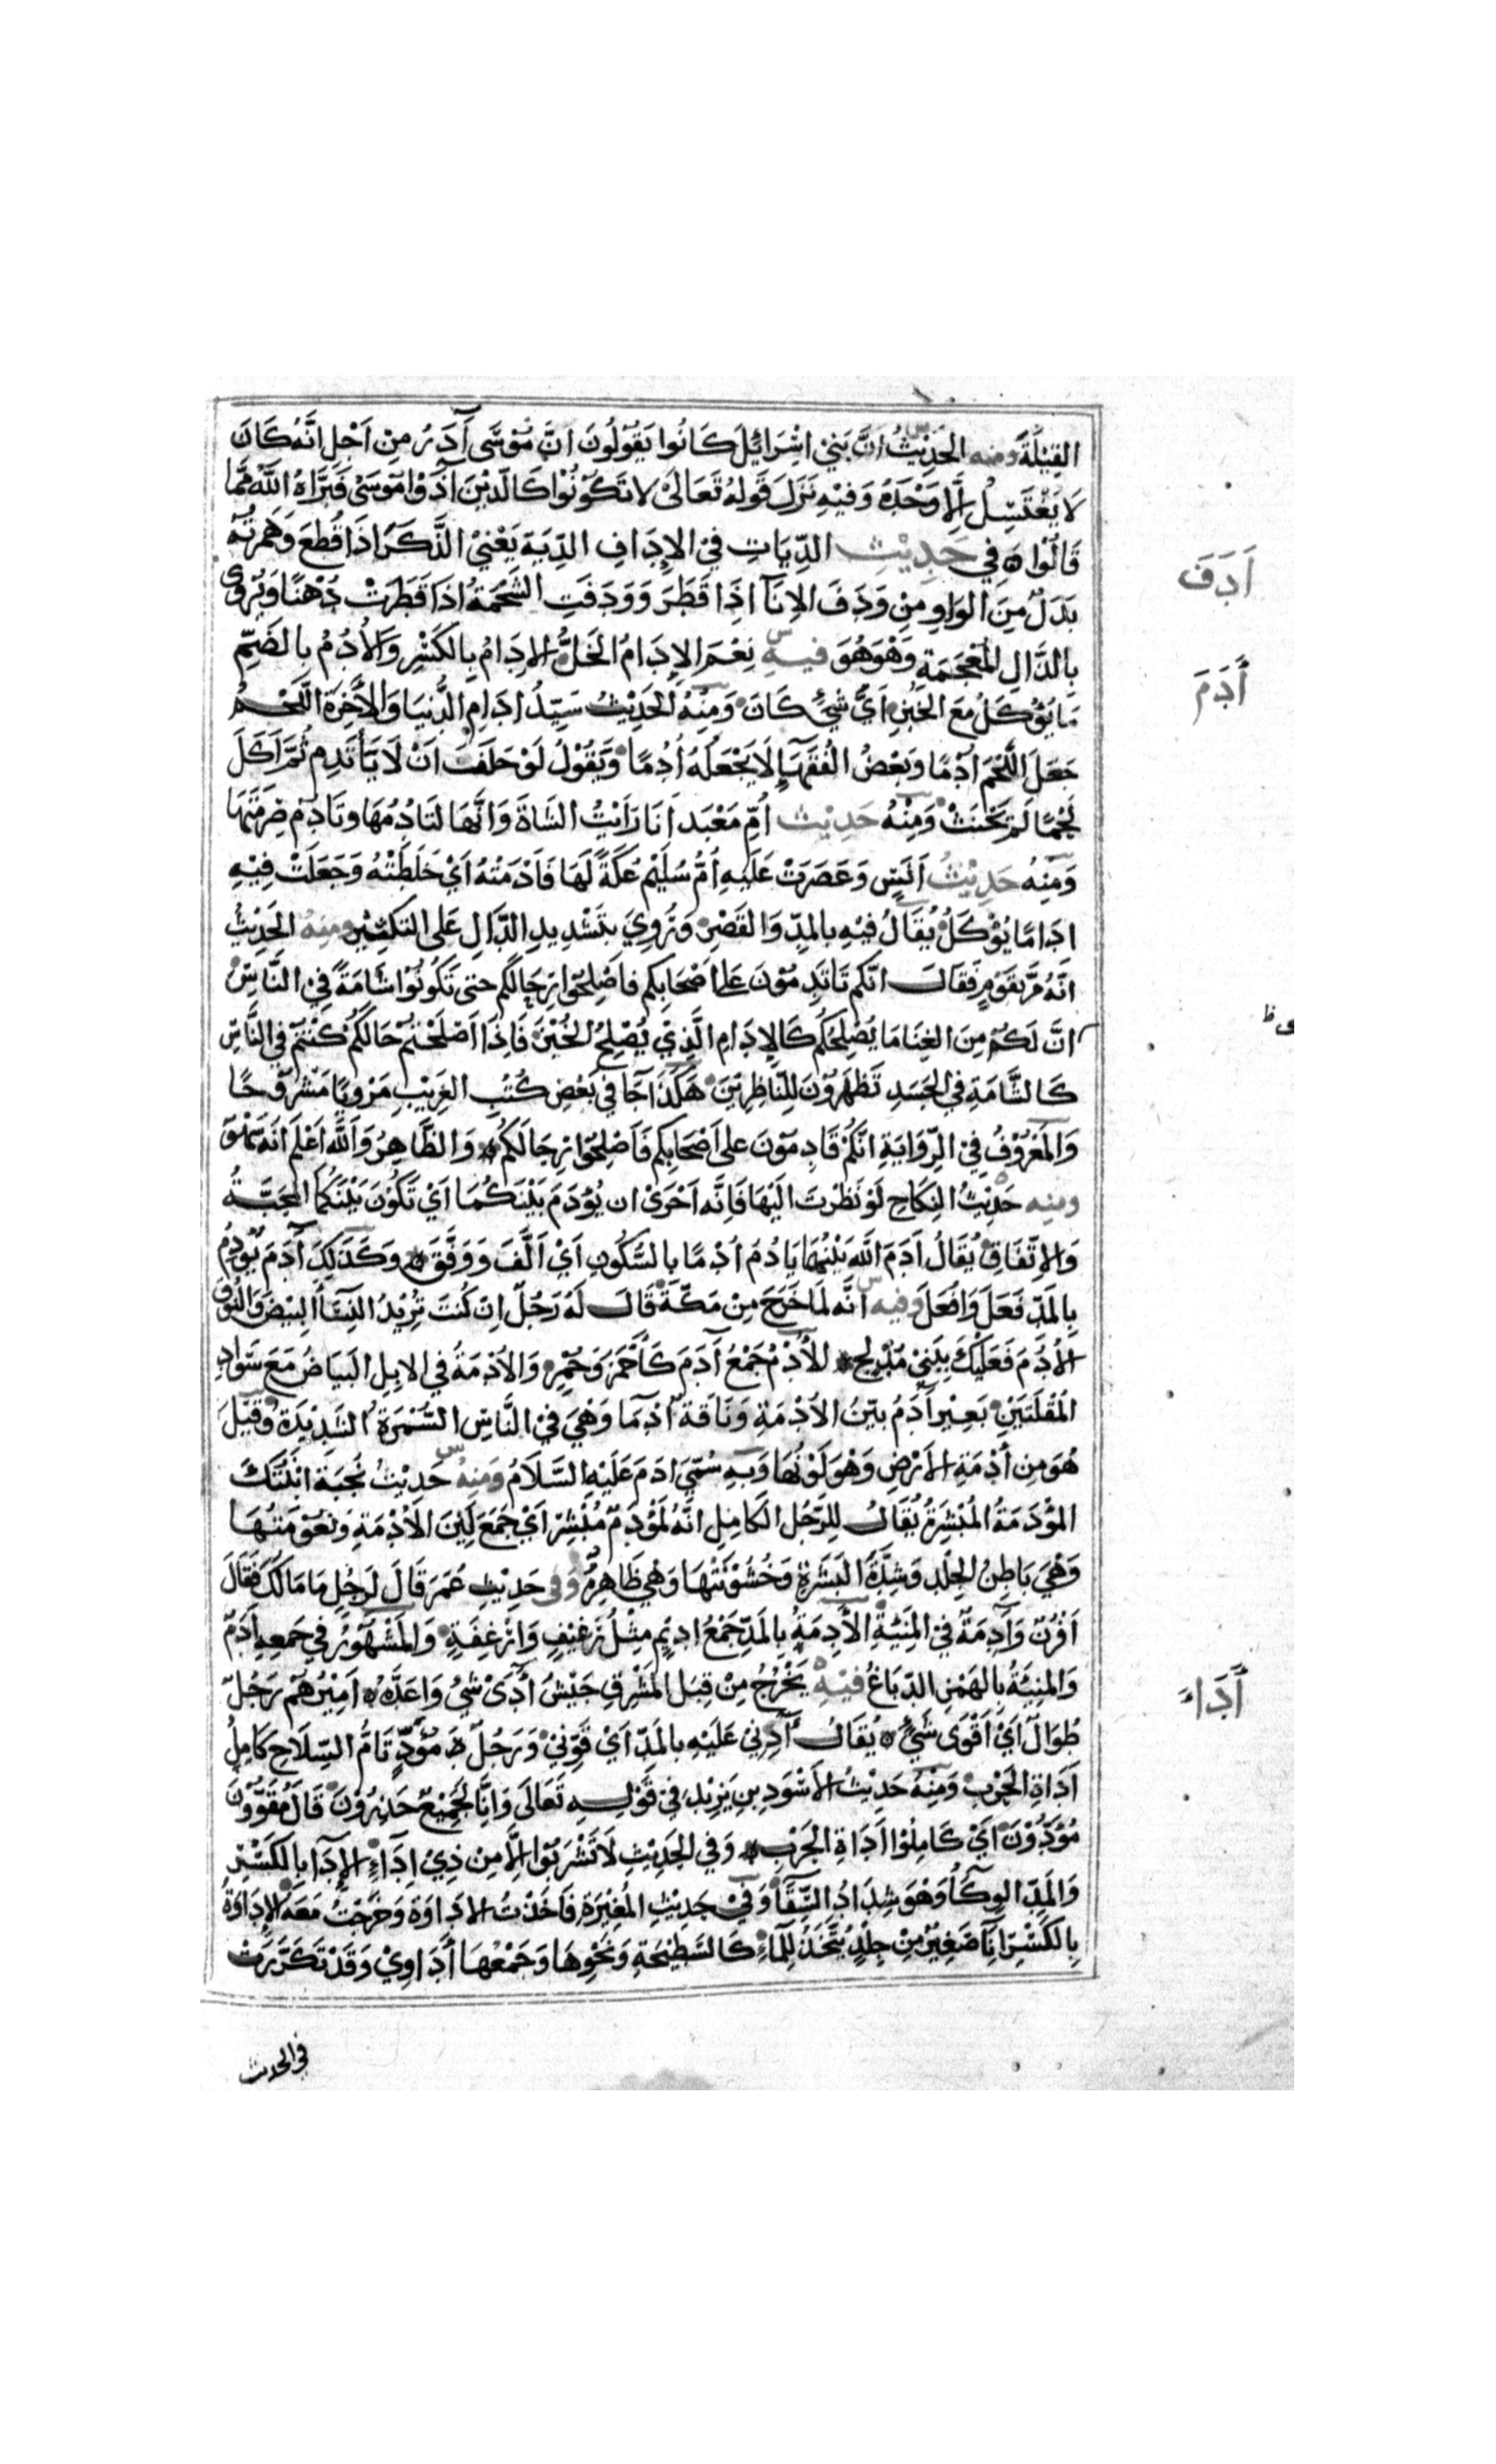 القِيْلَةَ ومنه الحَدِيْثُ اَنَّ بَنِيْ اِسْرَائِلَ كَانُوا يَقُوْلُونَ اَنَّ مُوْسَى آدَرُ مِنْ اَجْلِ اَنَّهُ كَانَ
لَا يَغْتَسِلُ اِلَّا وَحْدَهُ وَفِيْهِ نَزَلَ قَولهُ تَعَالَىٰ لا تَكُوْنُوْا كَالَّذِيْنَ آذَوْا مُوسَىٰ فَبَرَّاَهُ اللّٰهُ مِمَّا
قَالُوْا ۞ فِي حَدِيْثِ الدِّيَاتِ فِيْ الاِدَافِ الدِّيَة يَعْنِيْ الذَّكَرَ اِذَا قُطِعَ وَهَمزتُهُ
اَدَفَ
بَدَلٌ مِنَ الوَاوِ مِنْ وَدَفَ الاِنَآ اِذَا قَطَرَ وَوَدَفَتِ الشَّحْمَةُ اِذَا قَطَرَتْ دُهْنًا وَيُرْوى
بِالذَّالِ المُعْجَمَةِ وَهْوَ هُوَ فيهِ نِعْمَ الاِدَامُ الخَلُّ الاِدَامُ بِالكَسْرِ وَالاُدُمُ بِالضَمِّ
أَدَمَ
مَا يُوْكَلُ مَعَ الخُبْزِ اَيَّ شَيْءٍ كَانَ وَمِنْهُ الحَدِيْثُ سَيِّدُ اِدَامِ الدُّنْيَا وَالآخِرَةِ اللَّحْمُ
جَعَلَ اللَّحْمَ اُدْمًا وَبَعْضُ الفُقَهَآءِ لَا يَجْعَلُهُ اُدْمًا وَيَقُوْلُ لَوْ حَلَفَ اَنْ لَا يَأْتَدِمَ ثُمَّ اَكَلَ
لَحْمًا لَمْ يَحْنَثْ وَمِنْهُ حَدِيْث اُمِّ مَعْبَد اَنَا رَاَيْتُ الشَّاةَ وَاِنَّهَا لَتَادُمُهَا وتَادِمُ صِرمَتَهَا
وَمِنْهُ حَدِيْثُ اَنَسٍ وَعَصَرَتْ عَلَيهِ اُمُّ سُلَيْم عُكَّةً لَهَا فَاَدَمَتْهُ اَيْ خَلَطَتْهُ وَجَعَلَتْ فِيْهِ
اِدَامًا يُوْكَلُ يُقَالُ فِيْهِ بالمدِّ وَالقَصْرِ وَرُوِيَ بتَشْدِيدِ الدَّالِ عَلى التَكثِيْرِ ومِنهُ الحَدِيْثُ
انَّهُ مَرَّ بقَوْمٍ فَقَالَ اِنَّكم تَاتَدِمُوْنَ عَلى اَصْحَابِكم فاصْلِحُوا رِحَالَكُم حتى تَكُونُوْا شَامَةً فِيْ النَّاسِ
اِنَّ لَكُمْ مِنَ الغِنَا مَا يُصْلِحُكُم كَالاِدَامِ الَّذِيْ يُصْلِحُ الخُبْزَ فَاِذَا اَصْلَحْتُم حَالَكُمْ كُنْتُم فِي النَّاسِ
كَالشَّامَةِ فِي الجَسَدِ تَظهَرُوْنَ لِلنَّاظِرِيْنَ هَكَذَا جَآ فِي بَعْضِ كُتُبِ الغَرِيْبِ مَرْوِيًّا مَشْرُوْحًا
وَالمَعْرُوْفُ فِيْ الرِّوَايَةِ اِنَّكُمْ قَادِمُوْنَ على اَصْحَابِكم فَاَصْلِحُوا رِحَالَكُمْ ۞ وَالظَّاهِرُ وَاللّٰهُ اَعْلَم اَنَّهُ سَهْوٌ
ومنه حَدِيْثُ النِكَاحِ لَوْ نَظَرْتَ اِلَيْهَا فَاِنَّهُ اَحْرَىٰ ان يُوْدَمَ بَيْنَكُمَا اَيْ تَكُوْنَ بَيْنَكُمَا المحَبَّةُ
وَالاِتّفَاقِ يُقَالُ اَدَمَ اللّٰهُ بَيْنَهُمَا يَادُمُ اُدْمًا بِالسُّكُونِ اَيْ اَلَّفَ وَوَفَّقَ ۞ وَكَذٰلِكَ آدَمَ يُوْدِمُ
بِالمَدِّ فَعَلَ وَاَفْعَلَ وَفيه اَنَّه لَمَا خَرَجَ مِنْ مَكَّةَ قَالَ لَهُ رَجُلٌ اِنْ كُنْتَ تُرِيْدُ النِسَآ البِيْضَ وَالنُوْقَ
الأُدْمَ فَعَلَيْكَ بِبَنِيْ مُدْلِجٍ ۞ الأُدْمُ جَمْعُ آدَمَ كَاَحْمَر وَحُمْرٍ وَالاُدْمَةُ في الاِبِلِ البَيَاضُ مَعَ سَوَادِ
المُقْلَتَيْنِ بَعِيْر آدَمُ بيّنُ الاُدْمَةِ وَنَاقَةٌ اَدْمَا وَهْيَ فِيْ النَّاسِ السُّمْرَةُ الشَدِيْدَة وَقِيْلَ
هُوَ مِن أُدْمَةِ الاَرْضِ وَهْوَ لَوْنُهَا وَبِهِ سُمِّيَ ادَم عَلَيْهِ السَّلَامُ وَمِنهُ حَدِيْثُ نُجَبَةَ ابْنَتُكَ
المُؤْدَمَةُ المُبْشَرَةُ يُقَالُ لِلرَّجُل الكَامِلِ اِنَّهُ لَمُؤْدَمٌ مُبْشَرٌ اَيْ جَمَعَ لِيْنَ الاَدَمَةِ وَنُعُوْمَتُهَا
وَهْيَ بَاطِنُ الجِلْدِ وَشِدَّةُ البَشَرَةِ وَخُشُوْنَتُهَا وَهْيَ ظَاهِرُهُ وَفى حَدِيْثِ عُمَرَ قَالَ لِرَجُلٍ مَا مَالُكَ فَقَالَ
اَقْرُنٌ وَآدِمَةٌ فِيْ المَنِيْئَةِ الأَدِمَةُ بِالمَدِّ جَمْعُ ادِيْمٍ مِثْلُ رَغِيْفٍ وَاَرْغِفَةٍ وَالمَشْهُوْرُ فِي جَمعِهِ اُدُمٌ
وَالمَنِيْئَةُ بِالهَمْزِ الدِّبَاغُ فيْهِ يَخْرُجُ مِنْ قِبَل المَشْرِقِ جَيْشٌ أَدَىٰ شَيْ وَاَعَدَّهُ ۞ اَمِيْرُهُم رَجُلٌ
أَدَاءَ
طُوَالٌ اَيْ اَقْوَى شَيْءٍ ۞ يُقَالُ آدِنِي عَلَيْهِ بالمَدِّ اَيْ قَوِّنِي وَرَجُلٌ مُؤْدٍ تَامُّ السِّلَاحِ كَامِلُ
اَدَاةِ الحَرْبِ وَمِنْهُ حَدِيْثُ الاَسْوَدِ بنِ يَزِيْد فِيْ قَوْلِهِ تَعَالَى وَاِنَّا لَجَمِيْعٌ حَاذِرُوْنَ قَالَ مُقْوُوْنَ
مُوْدُوْنَ اَيْ كَامِلُوْا اَدَاةِ الحَرْبِ ۞ وَفي الحَدِيْثِ لَا تَشْرَبُوْا اِلَّا مِن ذِيْ اِدَآءٍ الاِدَآ بِالكَسْرِ
وَالمَدِّ الوِكَآُ وَهْوَ شِدَادُ السِّقَآ وَفِيْ حَدِيْثِ المُغِيْرَةِ فَاَخَذْتُ الاِدَاوَةَ وَخَرَجْتُ مَعَهُ الاِدَاوَةُ
بِالكَسْرِ اِنَآ صَغِيْرٌ مِنْ جِلْدٍ يُتَّخَذُ لِلمَآءِ كَالسَّطِيْحَةِ وَنَحْوِهَا وَجَمْعُهَا أَدَاوِيْ وَقَدْ تَكَرَّرَتْ
في الحديث